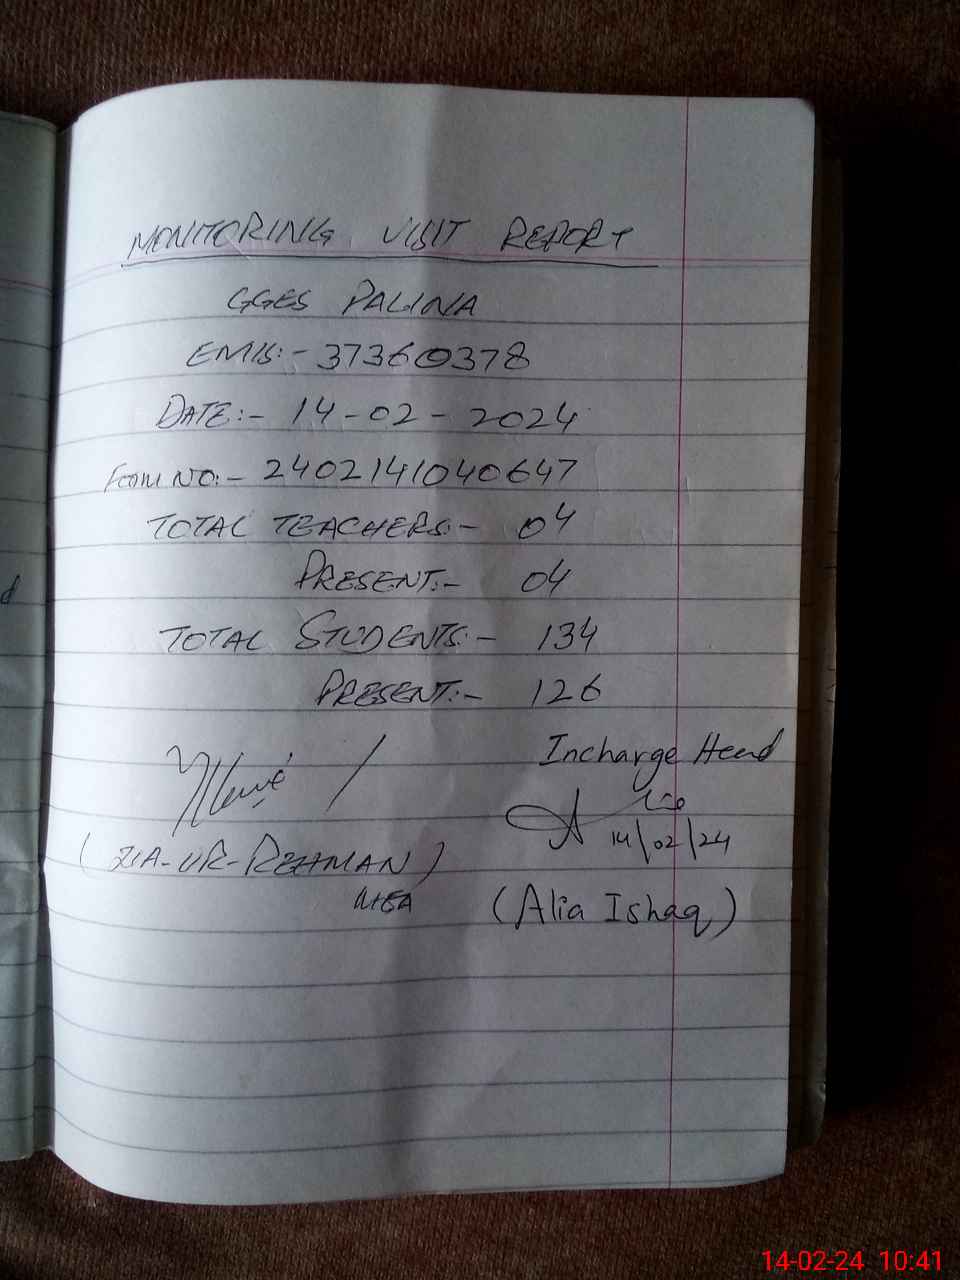 MONITORING VISIT REPORT
GGES PALINA
EMIS:- 37360378
DATE:- 14-02-2024
Form NO:- 2402141040647
TOTAL TEACHERS:- 04
PRESENT:- 04
TOTAL STUDENTS:- 134
PRESENT:- 126
Incharge Head
14/02/24
(ZIA-UR-REHMAN)
MEA
(Alia Ishaq)
d
14-02-24 10:41